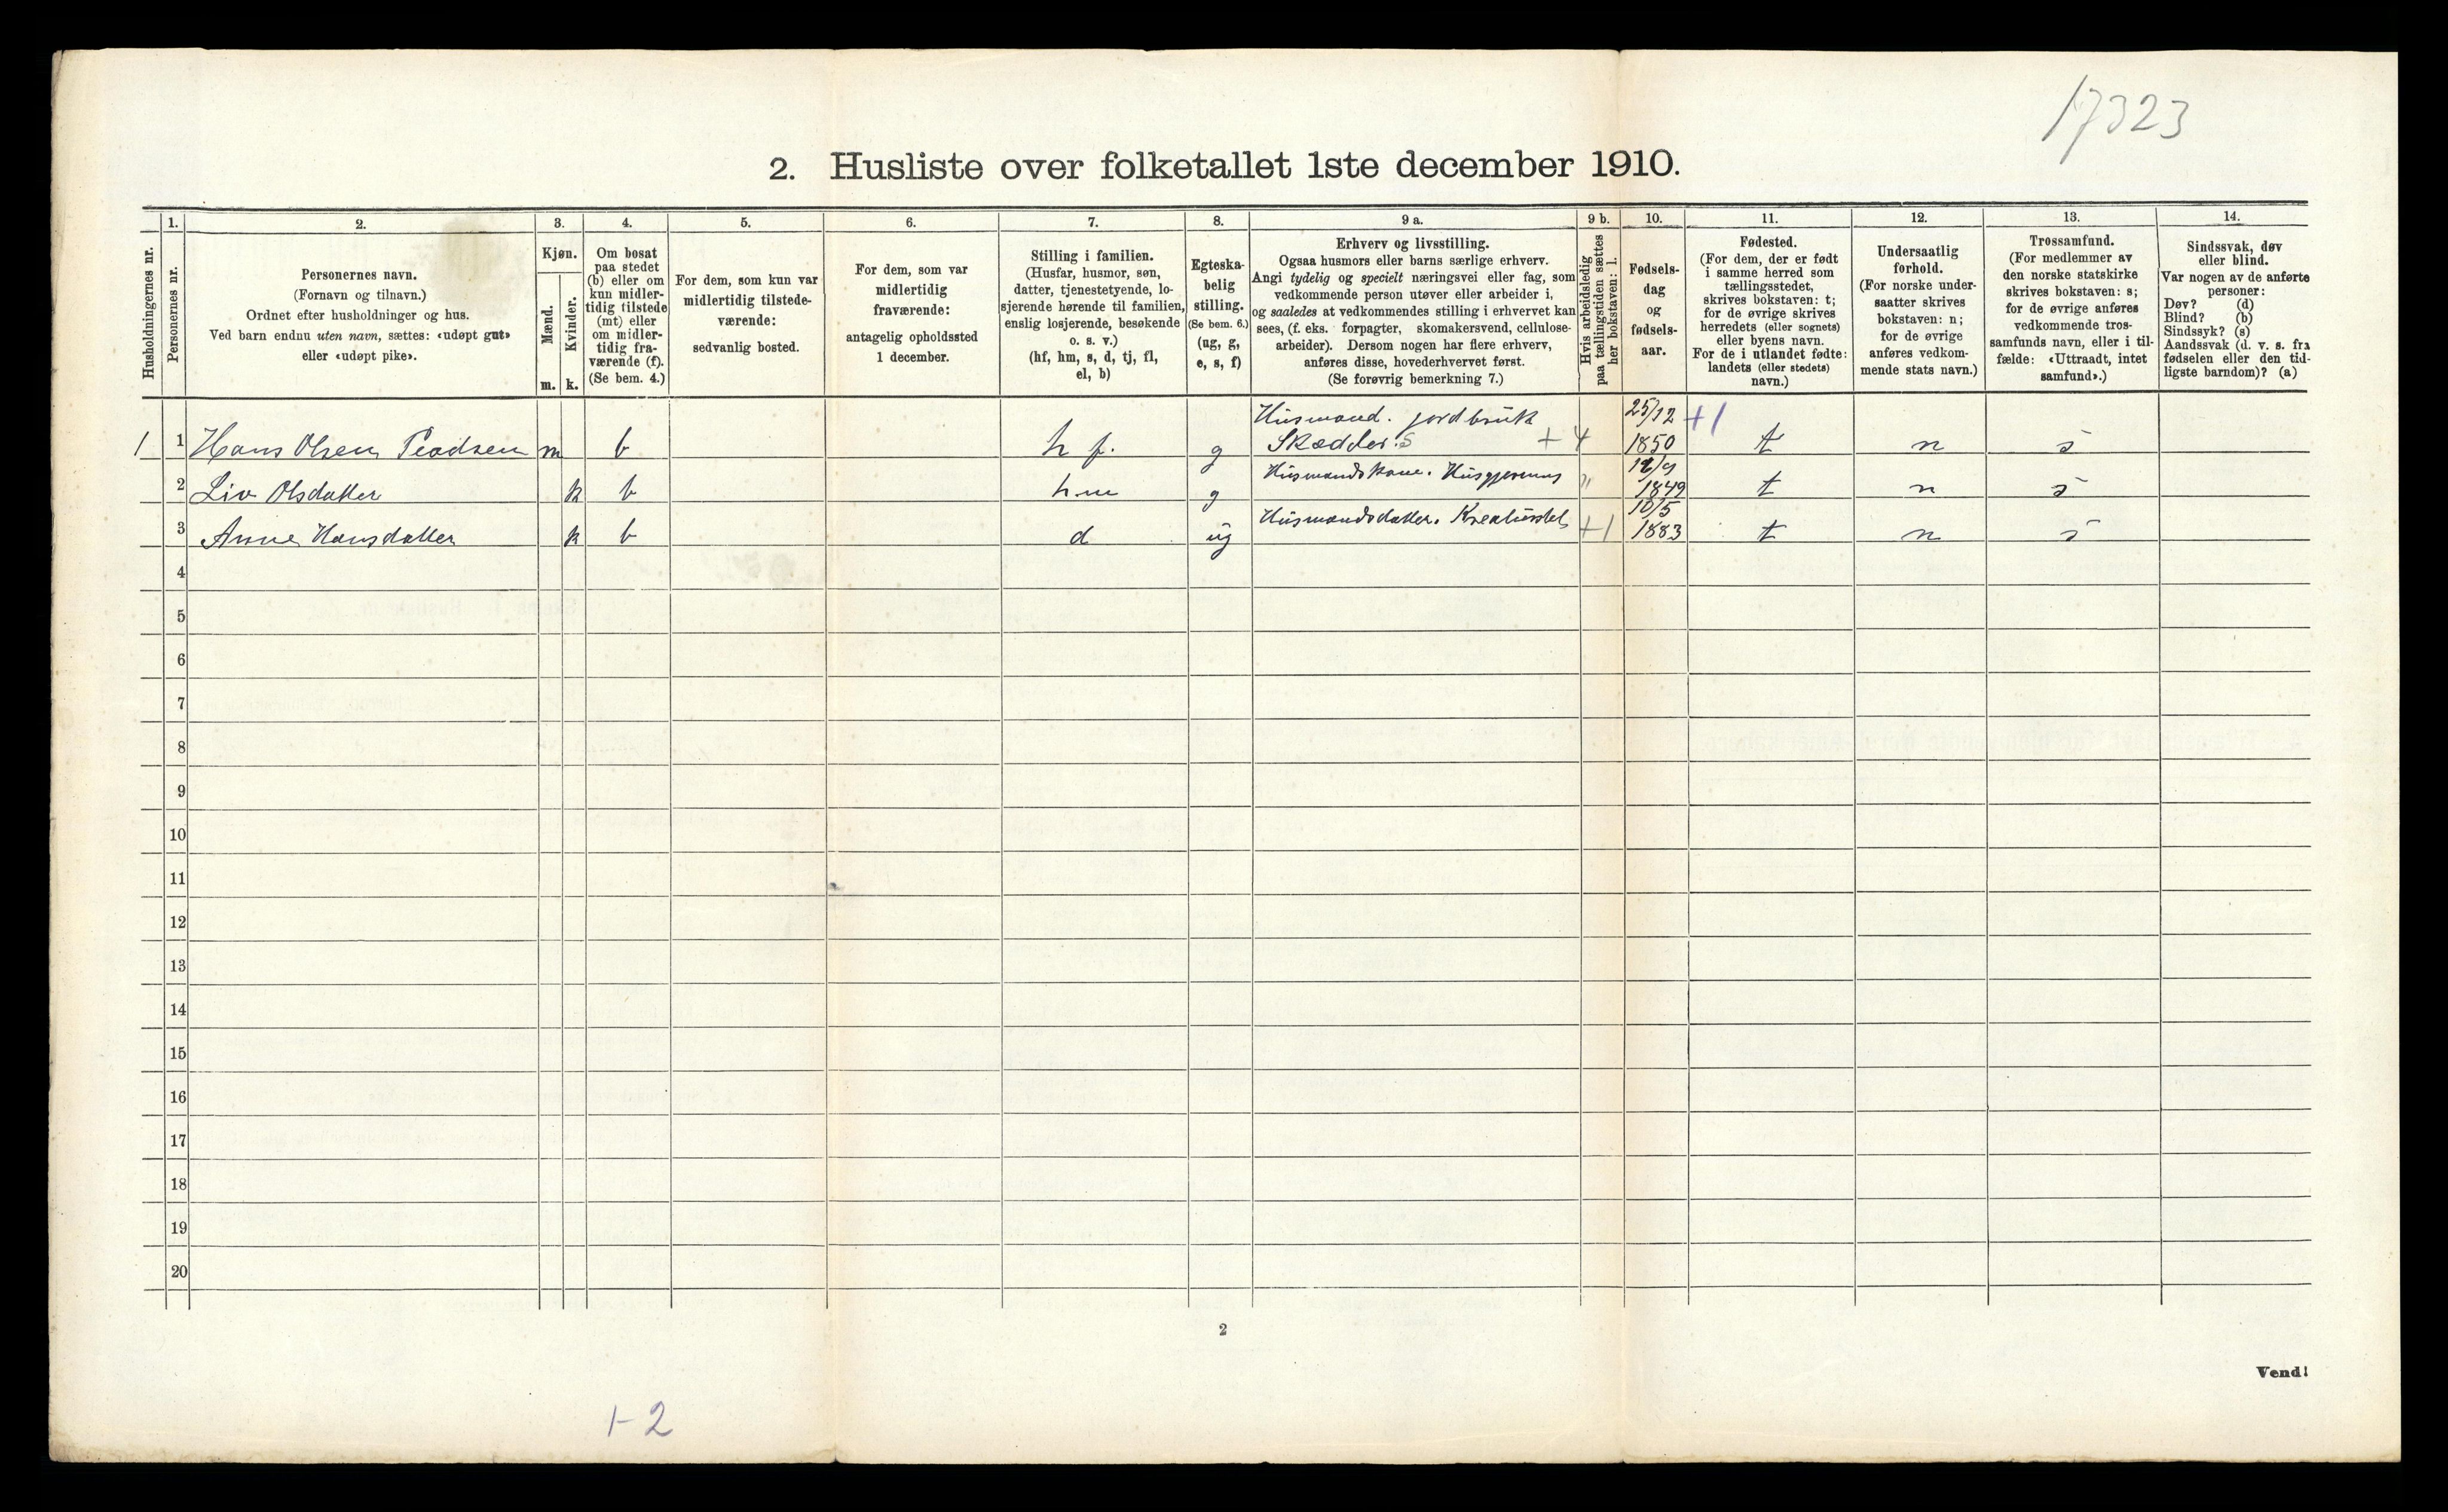 17323
2. Husliste over folketallet 1ste december 1910.
Husholdningernes nr.
1.
Personernes nr.
2.
Personernes navn.
(Fornavn og tilnavn.)
Ordnet efter husholdninger og hus.
Ved barn endnu uten navn, sættes: «udøpt gut»
eller «udøpt pike».
3.
Kjøn.
Mænd.
Kvinder.
m. k.
4.
Om bosat
paa stedet
(b) eller om
kun midler-
tidig tilstede
(mt) eller
om midler-
tidig fra-
værende (f).
(Se bem. 4.)
5.
For dem, som kun var
midlertidig tilstede-
værende:
sedvanlig bosted.
6.
For dem, som var
midlertidig
fraværende:
antagelig opholdssted
1 december.
7.
Stilling i familien.
(Husfar, husmor, søn,
datter, tjenestetyende, lo-
sjerende hørende til familien,
enslig losjerende, besøkende
o. s. v.)
(hf, hm, s, d, tj, fl,
el, b)
8.
Egteska-
belig
stilling.
(Se bem. 6.)
(ug, g,
e, s, f)
9 a.
Erhverv og livsstilling.
Ogsaa husmors eller barns særlige erhverv.
Angi tydelig og specielt næringsvei eller fag, som
vedkommende person utøver eller arbeider i,
og saaledes at vedkommendes stilling i erhvervet kan
sees, (f. eks. forpagter, skomakersvend, cellulose-
arbeider). Dersom nogen har flere erhverv,
anføres disse, hovederhvervet først.
(Se forøvrig bemerkning 7.)
9 b.
Hvis arbeidsledig
paa tællingstiden sættes
her bokstaven: l.
10.
Fødsels-
dag
og
fødsels-
aar.
11.
Fødested.
(For dem, der er født
i samme herred som
tællingsstedet,
skrives bokstaven: t;
for de øvrige skrives
herredets (eller sognets)
eller byens navn.
For de i utlandet fødte:
landets (eller stedets)
navn.)
12.
Undersaatlig
forhold.
(For norske under-
saatter skrives
bokstaven: n;
for de øvrige
anføres vedkom-
mende stats navn.)
13.
Trossamfund.
(For medlemmer av
den norske statskirke
skrives bokstaven: s;
for de øvrige anføres
vedkommende tros-
samfunds navn, eller i til-
fælde: «Uttraadt, intet
samfund».)
14.
Sindssvak, døv
eller blind.
Var nogen av de anførte
personer:
Døv? (d)
Blind? (b)
Sindssyk? (s)
Aandssvak (d. v. s. fra
fødselen eller den tid-
ligste barndom)? (a)
Husmand. jordbruk 25/12 +1
1 1 Hans Olsen m b h f. g Skrædder. s +4 1850 t n s
Husmandskone. 12/9
2 Liv Olsdatter k b hm g 1849 t n s
Husmandsdatter. Kreaturstel 10/5
3 Anne Hansdatter k b d ug +1 1883 t n s
4
5
6
7
8
9
10
11
12
13
14
15
16
17
18
19
20
2
Vend!
1-2